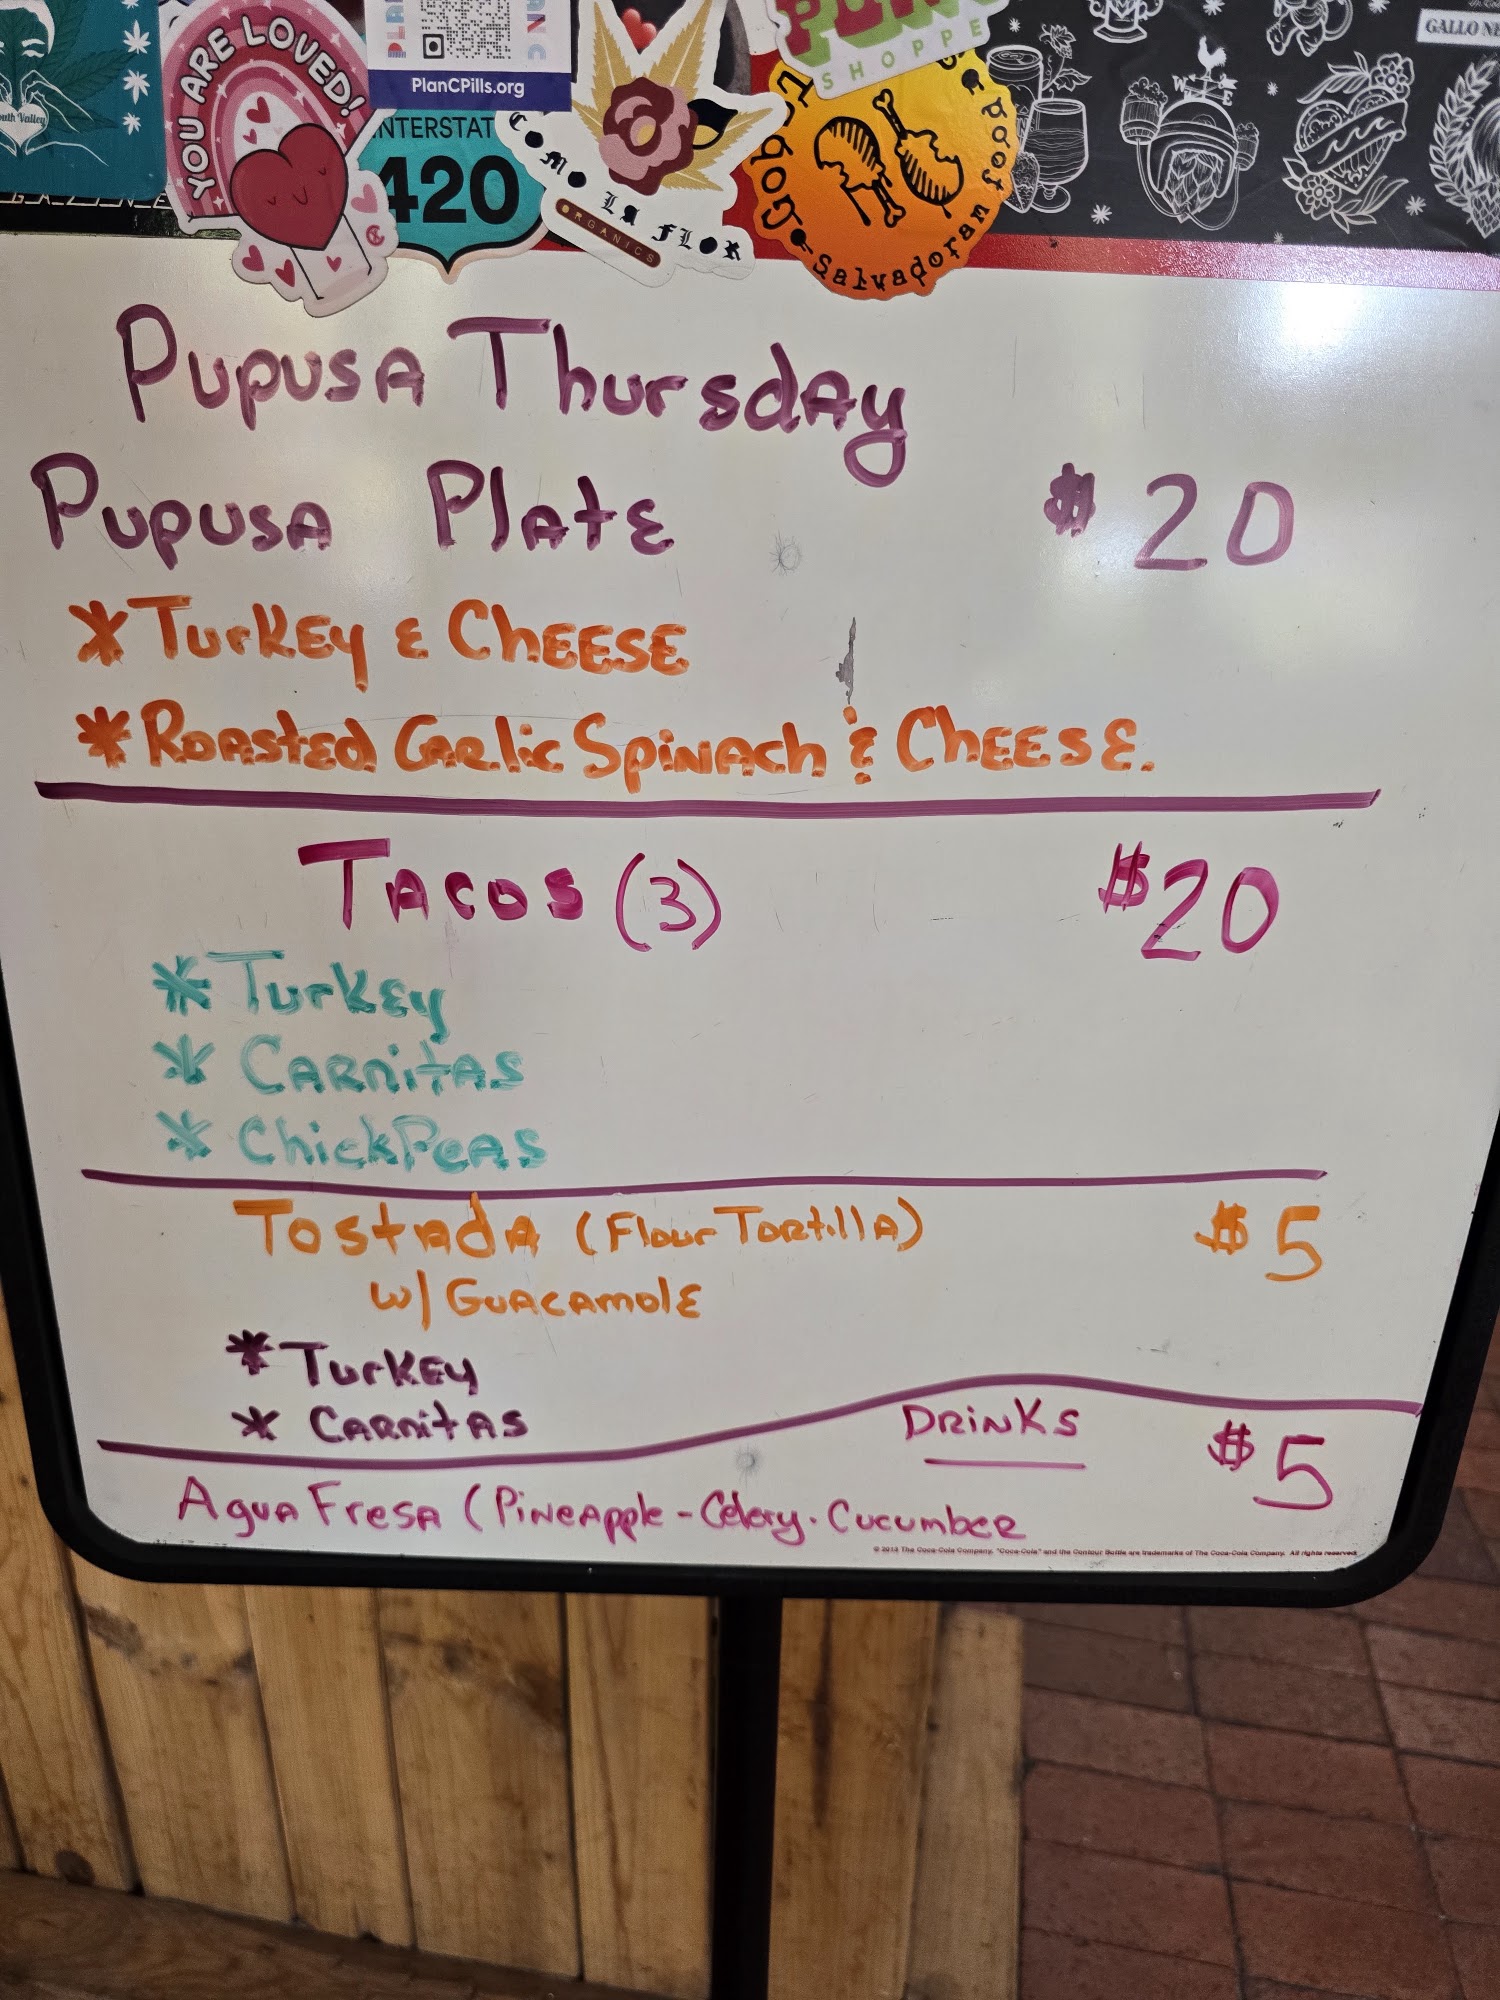 outh Valley
YOU ARE LOVED!
PLAN C
PlanCPills.org
INTERSTAT
420
COMO LA FLOR
ORGANICS
SHOPPE
Salvadoran food
GALLO NE
W E
Pupusa Thursday
Pupusa Plate $20
* Turkey & Cheese
* Roasted Garlic Spinach & Cheese.
Tacos (3) $20
* Turkey
* Carnitas
* ChickPeas
Tostada (Flour Tortilla) $5
w/ Guacamole
* Turkey
* Carnitas
Drinks $5
Agua Fresa (Pineapple - Celery. Cucumber
© 2013 The Coca-Cola Company. "Coca-Cola" and the Contour Bottle are trademarks of The Coca-Cola Company. All rights reserved.